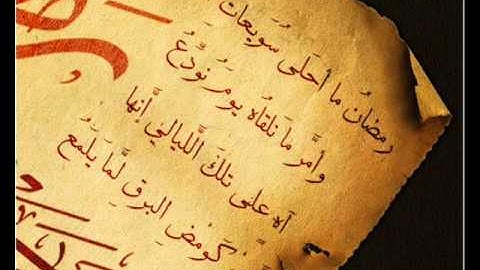 رمضانُ ما أحلى سُوَيعات
وأمَّر مَا نلقاه يومَ نُودِّعُ
آه على تلكَ اللَّيالي إنَّها
كَومضِ البرقِ لمَّا يَلمَعُ